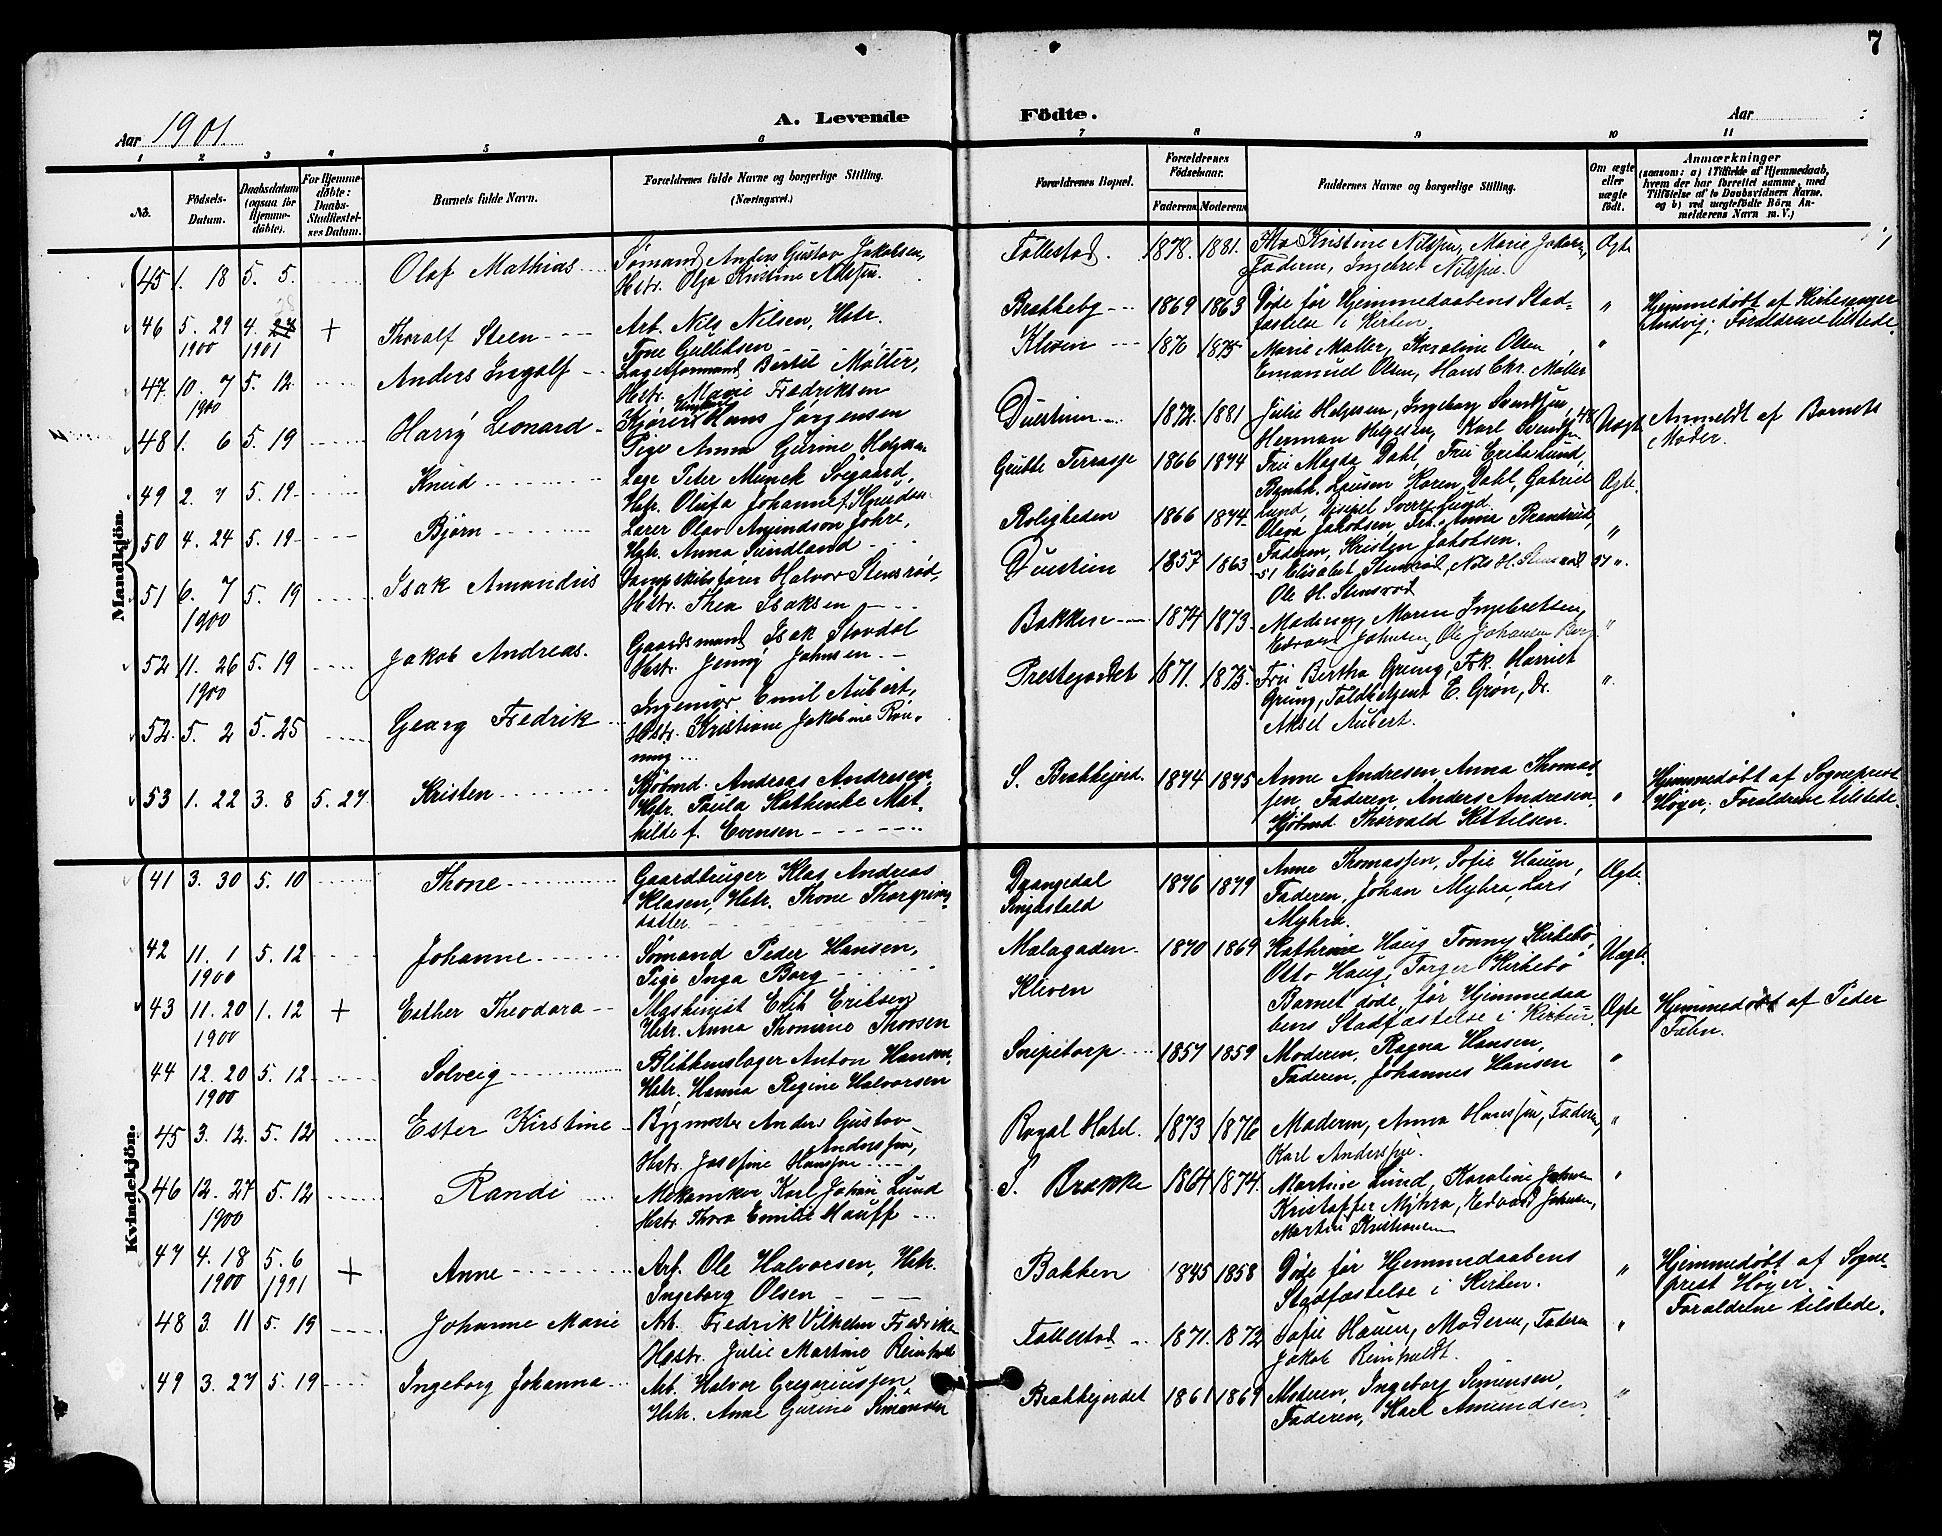 7
Aar 1901.
A. Levende
Födte.
Aar
1 2 3 4 5 6 7 8 9 10 11
No.
Födsels-Datum.
Daabsdatum (ogsaa for Hjemme-döbte).
For Hjemme-döbte: Daabs-Stadfæstel-ses Datum.
Barnets fulde Navn.
Forældrenes fulde Navne og borgerlige Stilling. (Næringsvei.)
Forældrenes Bopæl.
Forældrenes Födselsaar.
Faderens Moderens
Faddernes Navne og borgerlige Stilling.
Om ægte eller uægte födt.
Anmærkninger
(saasom: a) i Tilfælde af Hjemmedaab, hvem der har forrettet samme, med Tilföielse af to Daabsvidners Navne. og b) ved uægtefödte Börn An-melderens Navn m. V.)
Mandkjön.
45 1. 18 5. 5 Olaf Mathias Sømand Anders Gustav Jakobsen, Hstr. Olga Kristine Nilssen.
Follestad. 1878. 1881. Kristine Nilssen, Marie Jakobs, Faderen, Ingebret Nilssen. Ægte
46 5. 29 1900 4. 28 1901 + Thoralf Steen Arb. Nils Nilsen, Hstr. Tone Gullidsen
Brækkeby 1869 1863 Døde før Hjemmedaabens Stad-fæstelse i Kirken. " Hjemmedøbt af Kirkesanger Landvig; Forældrene tilstede.
47. 10. 7 1900 5. 12. Anders Ingolf Lagesformand Bertel Møller, Hstr. Marie Fredriksen
Kleven 1870 1875 Marie Møller, Karoline Olsen, Emanuel Olsen, Hans Chr. Møller "
48 1. 6 5. 19 Harry Leonard Kjører Hans Jörgensen Pige Anna Gurine Holgersen
Duestien 1872. 1881 Julie Helgesen, Ingeborg Svendsen, Herman Helgesen, Karl Svendsen 48 Uægte Anmeldt af Barnets Moder.
49 2. 7 5. 19 Knud Læge Peter Munch Søegaard, Hstr. Olufa Johanne f. Knudsen
Grubbe Terrasse 1866 1874 Fru Magda Dahl, Fru Erika Lund, Bankk. Lausen Karen Dahl, Gabriel Lund, Discipel Sverr Lund. Ægte.
50 4. 24 5. 19 Bjørn Lærer Olav Amundson Johre, Hstr. Anna Sundland
Roligheden 1866 1874. Olava Jakobsen, Frk. Anna Brandrud, Faderen, Kristen Jakobsen. "
51 6. 7 1900 5. 19 Isak Amandus Dampskibsfører Halvor Stensrød, Hstr. Thea Isaksen
Duestien 1857 1863 51 Elisabet Stensrød, Nils H. Stensrød Ole H. Stensrød 51 ".
52 11. 26 1900 5. 19 Jakob Andreas. Gaardsmand Isak Stordal Hstr. Jenny Johnsen
Bakken 1874 1873. Moderen, Maren Ingebretsen, Edvard Johnsen, Ole Johansen Berg "
52. 5. 2 5. 25 Georg Fredrik Ingeniør Emil Aubert, Hstr. Kristiane Jakobine Røn-ning
Prestejordet 1871. 1875. Fru Bertha Grung, Frk. Harriet Grung, Toldbetjent E. Grøn, Dr. Aksel Aubert. "
53 1. 22 3. 8 5. 27 Kristen Kjøbmd. Andreas Andresen, Hstr. Paula Kathinke Mat-hilde f. Evensen
S. Brækkejord. 1874 1875 Anne Andresen, Anna Thomas-sen, Faderen, Anders Andresen, Kjøbmd. Thorvald Kittelsen. " Hjemmedøbt af Sogneprest Høyer; Forældrene tilstede.
Kvindekjön.
41 3. 30 5. 10 Thone Gaardbruger Klas Andreas Klasen, Hstr. Thone Thorgrims-datter
Drangedal 1876 1879 Anne Thomassen, Sofie Hauen, Faderen, Johan Myhra, Lars Myhra. Ægte.
42 11. 1 1900 5. 12 Johanne Sømand Peder Hansen, Pige Inga Borg
Malagaden 1870 1869 Kathrine Haug Tonny Kirkebø Otto Haug, Torger Kirkebø Uægte.
43 11. 20 1900 1. 12 + Esther Theodora Maskinist Erik Eriksen Hstr. Anna Thomine Thorsen
Kleven Barnet døde før Hjemmedaa-bens Stadfæstelse i Kirken. Ægte Hjemmedøbt af Peder Fæhn.
44 12. 20 1900 5. 12 Solveig Blikkenslager Anton Hansen, Hstr. Hanna Regine Halvorsen
Snipetorp 1857 1859 Moderen, Ragna Hansen, Faderen, Johannes Hansen "
45 3. 12. 5. 12 Ester Kirstine Bygmester Anders Gustav Anderssen, Hstr. Josefine Hanssen
Royal Hotel. 1873 1876 Moderen, Anna Hanssen, Faderen, Karl Anderssen. "
46 12. 27 1900 5. 12 Randi Mekaniker Karl Johan Lund Hstr. Thora Emilie Hauff
S. Brække 1864 1874. Martine Lund, Karoline Johnsen Kristoffer Myhra, Edvard Johnsen, Martin Kristiansen "
47 4. 18 1900 5. 6 1901 + Anne Arb. Ole Halvorsen, Hstr. Ingeborg Olsen
Bakken 1845 1858 Døde før Hjemmedaabens Stadfæstelse i Kirken. " Hjemmedøbt af Sogne-prest Høyer. Forældrene tilstede.
48 3. 11 5. 19 Johanne Marie Arb. Fredrik Vilhelm Fredriksen Hstr. Julie Martine Reinholdt
Follestad 1871. 1872 Sofie Hauen, Moderen, Faderen Jakob Reinholdt. "
49 3. 27 5. 19 Ingeborg Johanna Arb. Halvor Gregoriussen Hstr. Anne Gurine Simonsen
Brækkejordet 1861 1869 Moderen, Ingeborg Simonsen, Faderen, Karl Amundsen. "